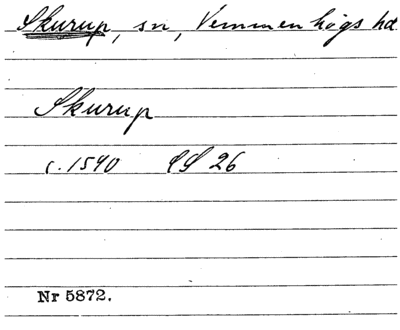 Skurup, sn, Vemmenhögs hd
Skurup
c. 1540 CS 26
Nr 5872.